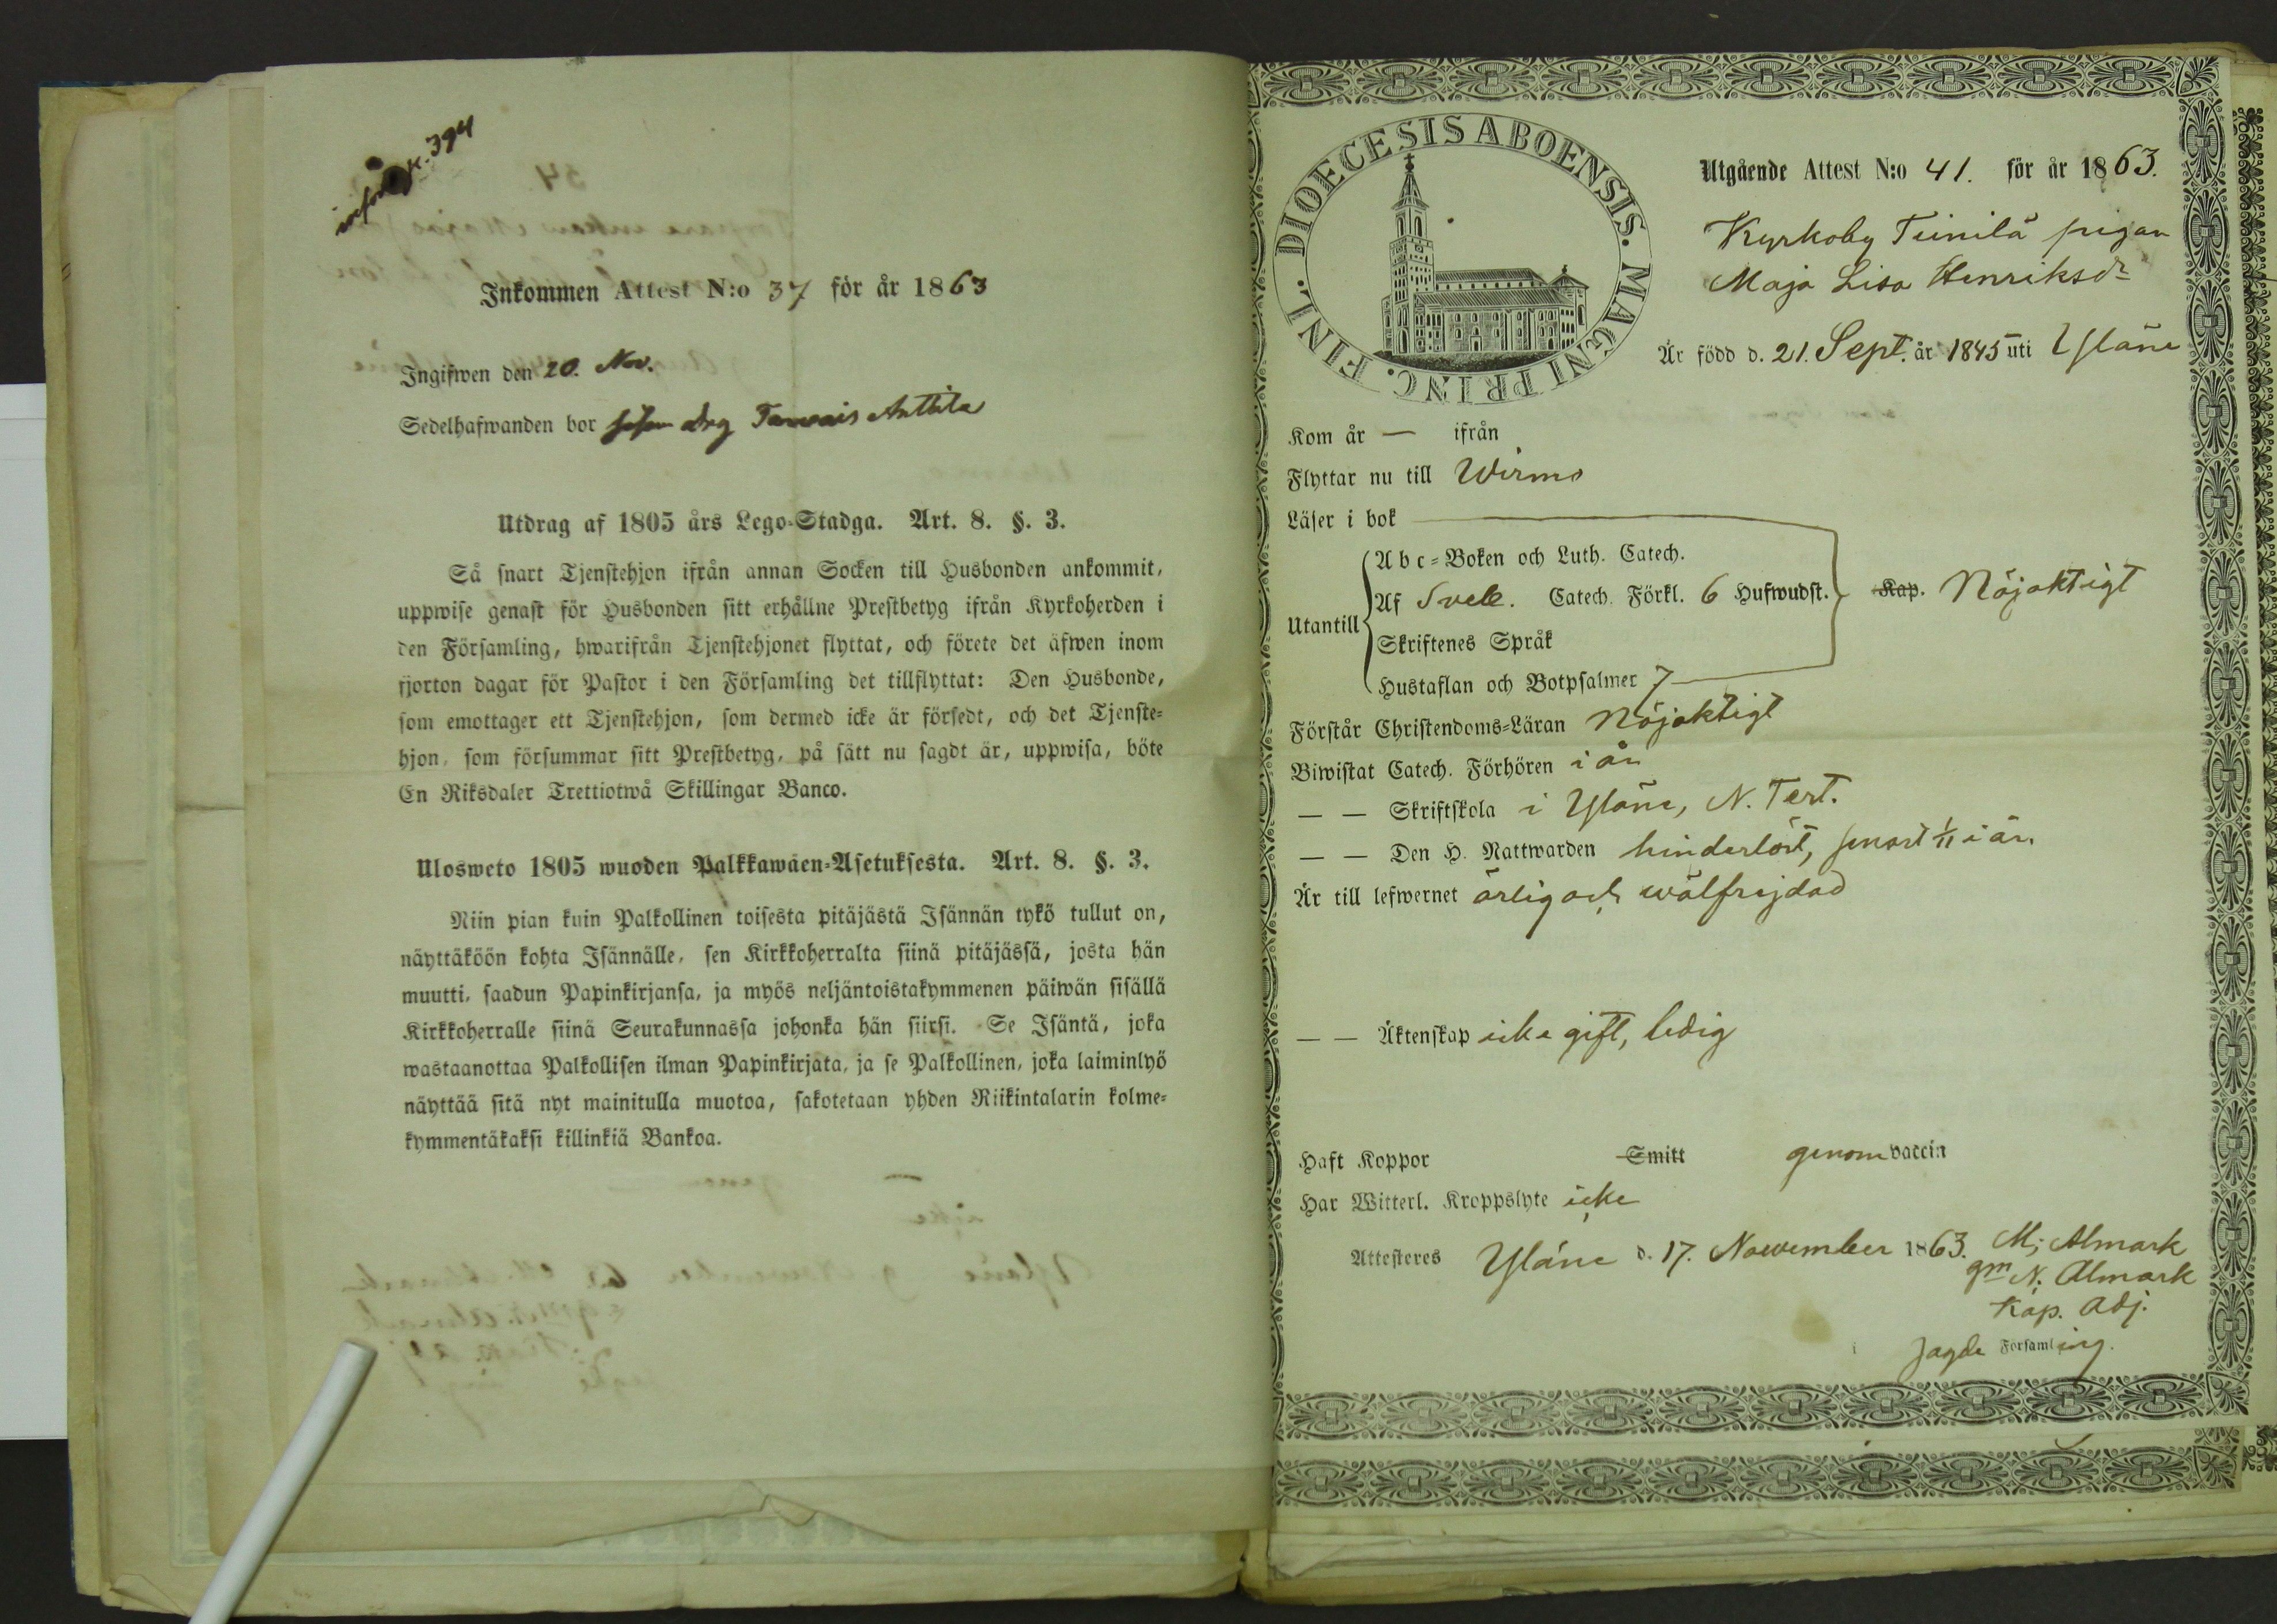 införd pg. 394
Inkommen Attest N:o 37 för år 1863
Ingifwen den 20. Nov.
Sedelhafwanden bor som drg Tarvais Anttila
Utdrag af 1805 års Lego-Stadga. Art. 8. §. 3.
Så snart Tjenstehjon ifrån annan Socken till Husbonden ankommit,
uppwise genast för Husbonden sitt erhållne Prestbetyg ifrån Kyrkoherden i
den Församling, hwarifrån Tjenstehjonet flyttat, och förete det äfwen inom
fjorton dagar för Pastor i den Församling det tillflyttat: Den Husbonde,
som emottager ett Tjenstehjon, som dermed icke är försedt, och det Tjenste-
hjon, som försummar sitt Prestbetyg, på sätt nu sagdt är, uppwisa, böte
En Riksdaler Trettiotwå Skillingar Banco.
Ulosweto 1805 wuoden Palkkawäen-Asetuksesta. Art. 8. §. 3.
Niin pian kuin Palkollinen toisesta pitäjästä Isännän tykö tullut on,
näyttäköön kohta Isännälle, sen Kirkkoherralta siinä pitäjässä, josta hän
muutti, saadun Papinkirjansa, ja myös neljäntoistakymmenen päiwän sisällä
Kirkkoherralle siinä Seurakunnassa johonka hän siirsi. Se Isäntä, joka
wastaanottaa Palkollisen ilman Papinkirjata, ja se Palkollinen, joka laiminlyö
näyttää sitä nyt mainitulla muotoa, sakotetaan yhden Riikintalarin kolme-
kymmentäkaksi killinkiä Bankoa.
DIOECESIS ABOENSIS. MAGNI PRINC. FINL.
Utgående Attest N:o 41. för år 1863.
Kyrkoby Teinilä pigan
Maja Lisa Henriksdr
Är född d. 21. Sept. år 1845 uti Yläne
Kom år — ifrån
Flyttar nu till Wirmo
Läser i bok
Utantill
Abc-Boken och Luth. Catech.
Af Sveb. Catech. Förkl. 6 Hufwudst. Kap. Nöjaktigt
Skriftenes Språk
Hustaflan och Botpsalmer 7
Förstår Christendoms-Läran Nöjaktigt
Biwistat Catech. Förhören i år
— — Skriftskola i Yläne, N. Test.
— — Den H. Nattwarden hinderlöst, senast 1/11 i år.
Är till lefwernet ärlig och wälfrejdad
— — Äktenskap icke gift, ledig
Haft Koppor Smitt genom vaccin
Har Witterl. Kroppslyte icke
Attesteres Yläne d. 17. November 1863. M; Almark
gm N. Almark
Kap. Adj.
i sagde Församling.